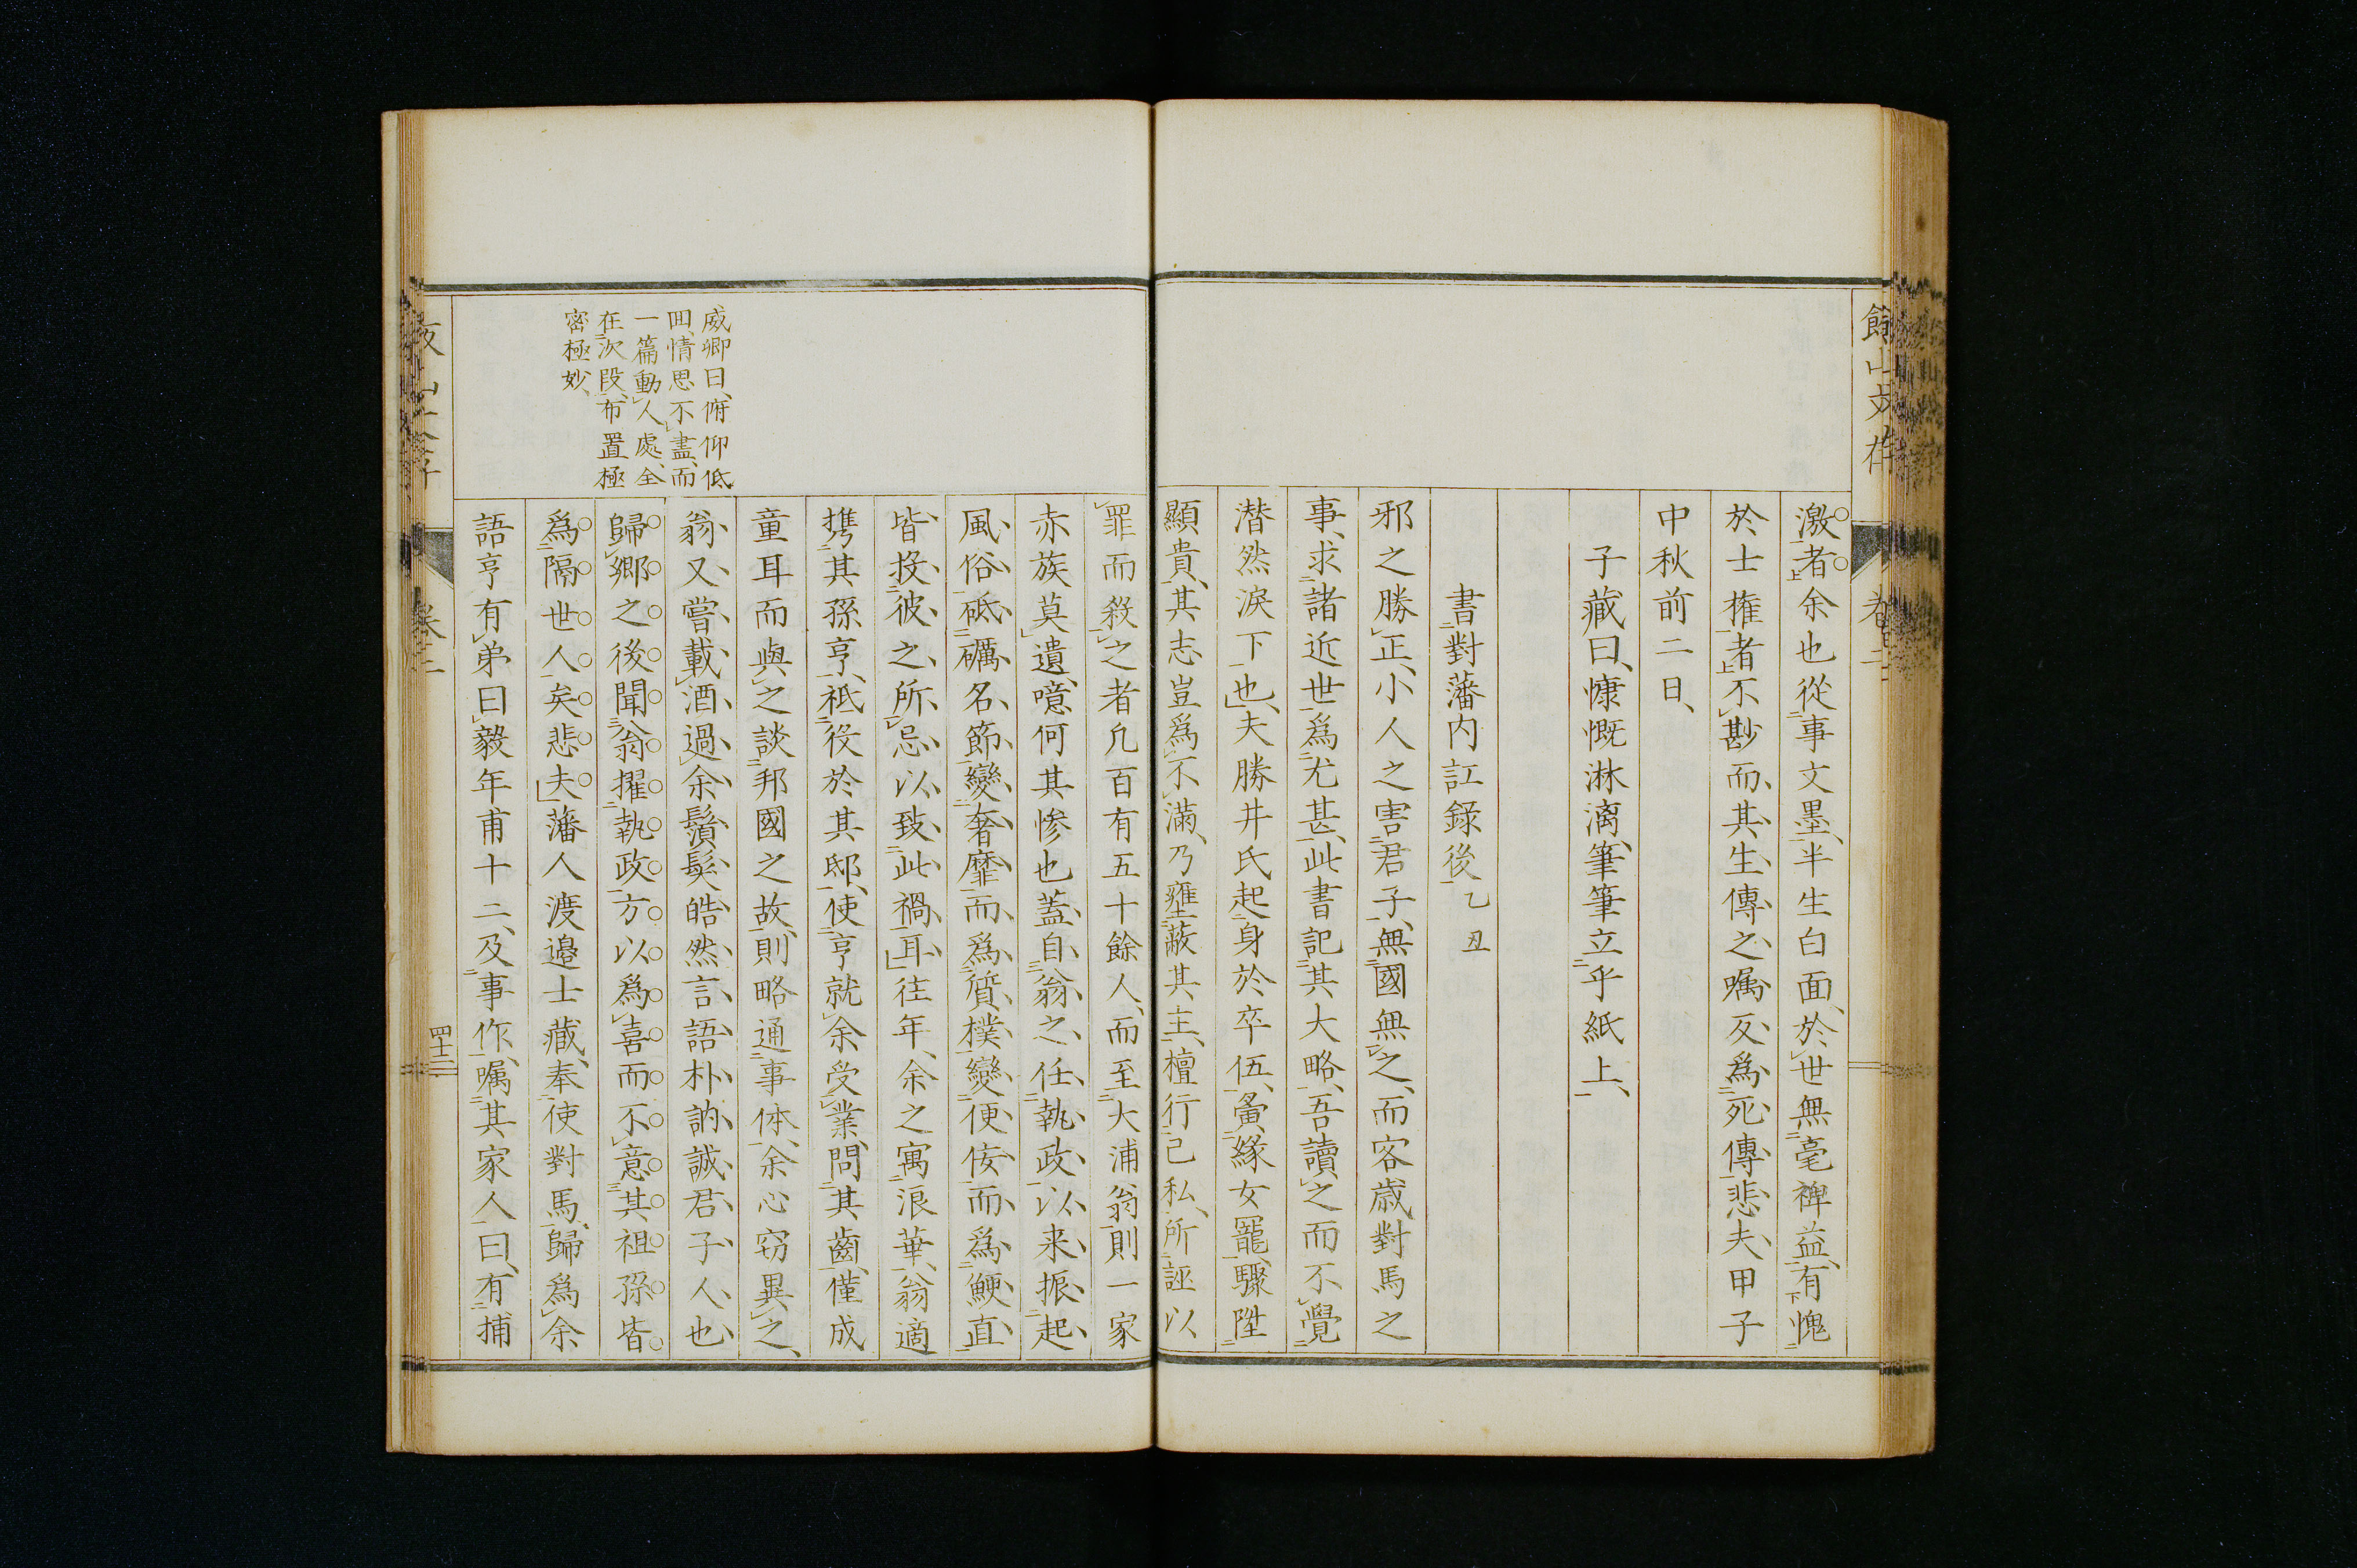 餘山文存
卷二
激者余也從事文墨半生白面於世無毫裨益有愧
於士權者不尠而其生傳之嘱反爲死傳悲夫甲子
中秋前二日、
子藏曰、慷慨淋漓、筆筆立乎紙上、
書對藩内訌録後乙丑
邪之勝正、小人之害君子、無國無之、而客歳對馬之
事、求諸近世爲尤甚、此書記其大略、吾讀之而不覺
潜然涙下也、夫勝井氏起身於卒伍、夤緣女寵、驟陞
顯貴、其志豈爲不滿、乃壅蔽其主、檀行己私、所誣以
罪而殺之者凡百有五十餘人、而至大浦翁則一家
赤族莫遺、噫何其惨也蓋自翁之任執政以来振起
風俗砥礪名節變奢靡而爲質樸變便侫而爲鯁直
皆投彼之所忌以致此禍耳往年余之寓浪華翁適
携其孫亨、祗役於其邸、使亨就余受業、問其齒、僅成
童耳而與之談邦國之故、則略通事体、余心窃異之、
翁又嘗載酒過余鬚髮皓然言語朴訥誠君子人也
歸郷之後聞翁擢執政方以爲喜而不意其祖孫皆
爲隔世人矣悲夫藩人渡邉士藏、奉使對馬、歸爲余
語亨有弟曰毅年甫十二、及事作、嘱其家人曰、有捕
威卿曰、俯仰低
回、情思不盡、而
一篇動人處、全
在次段、布置極
密極妙、
卷二
四十二